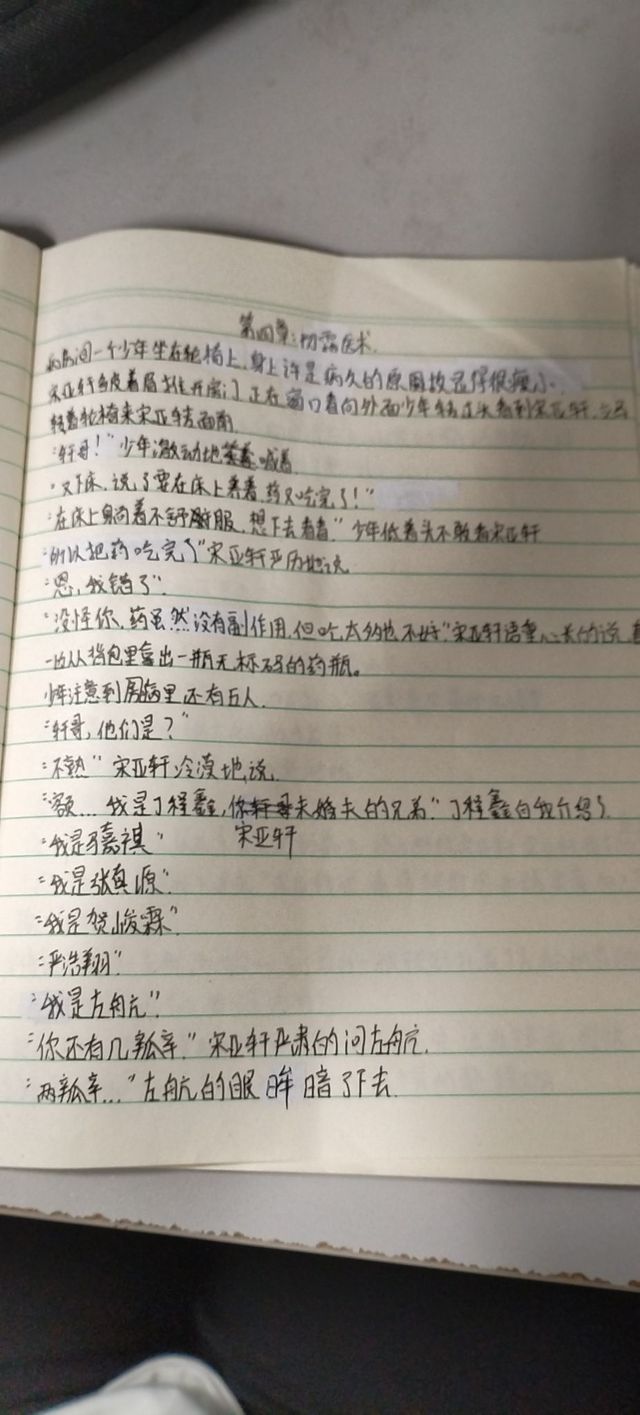 第四章:初露医术.
病房间一个少年坐在轮椅上,身上许是病久的原因故显得很瘦小.
宋亚轩皱着眉推开房门 正在窗口看向外面少年转过头看到宋亚轩
转着轮椅来宋亚轩面前
"轩哥!"少年激动地喊着
"又下床,说了要在床上养着 药又吃完了!"
"在床上身尚着不舒服,想下去看看"少年低着头不敢看宋亚轩
"所以把药吃完了"宋亚轩严历地说
"恩,我错了".
"没怪你,药虽然没有副作用,但吃太多也不好"宋亚轩语重心长的说,
从背包里拿出一瓶无标码的药瓶。
少年注意到房里还有五人.
"轩哥,他们是?"
"不熟"宋亚轩冷漠地说.
"额...我是丁程鑫,你未婚夫的兄弟."丁程鑫自我介绍
"我是马嘉祺" 宋亚轩
"我是张真源".
"我是贺峻霖".
"严浩翔"
"我是左航".
"你还有几瓢辛."宋亚轩严肃的问左航.
"两瓢辛..."左航的眼眸暗了下去.